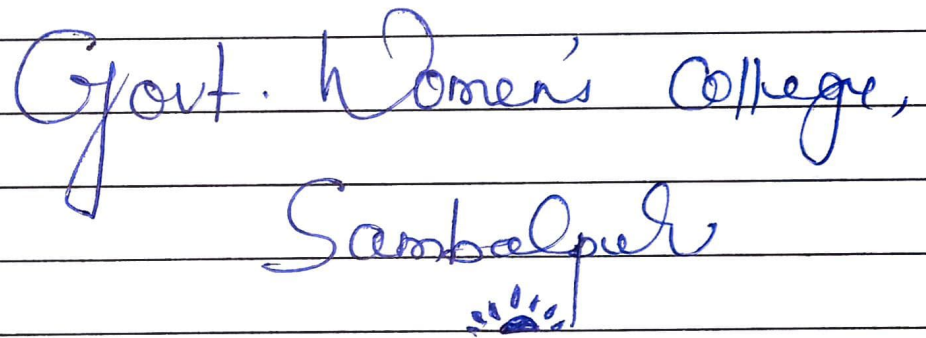 Govt. Women's College,
Sambalpur